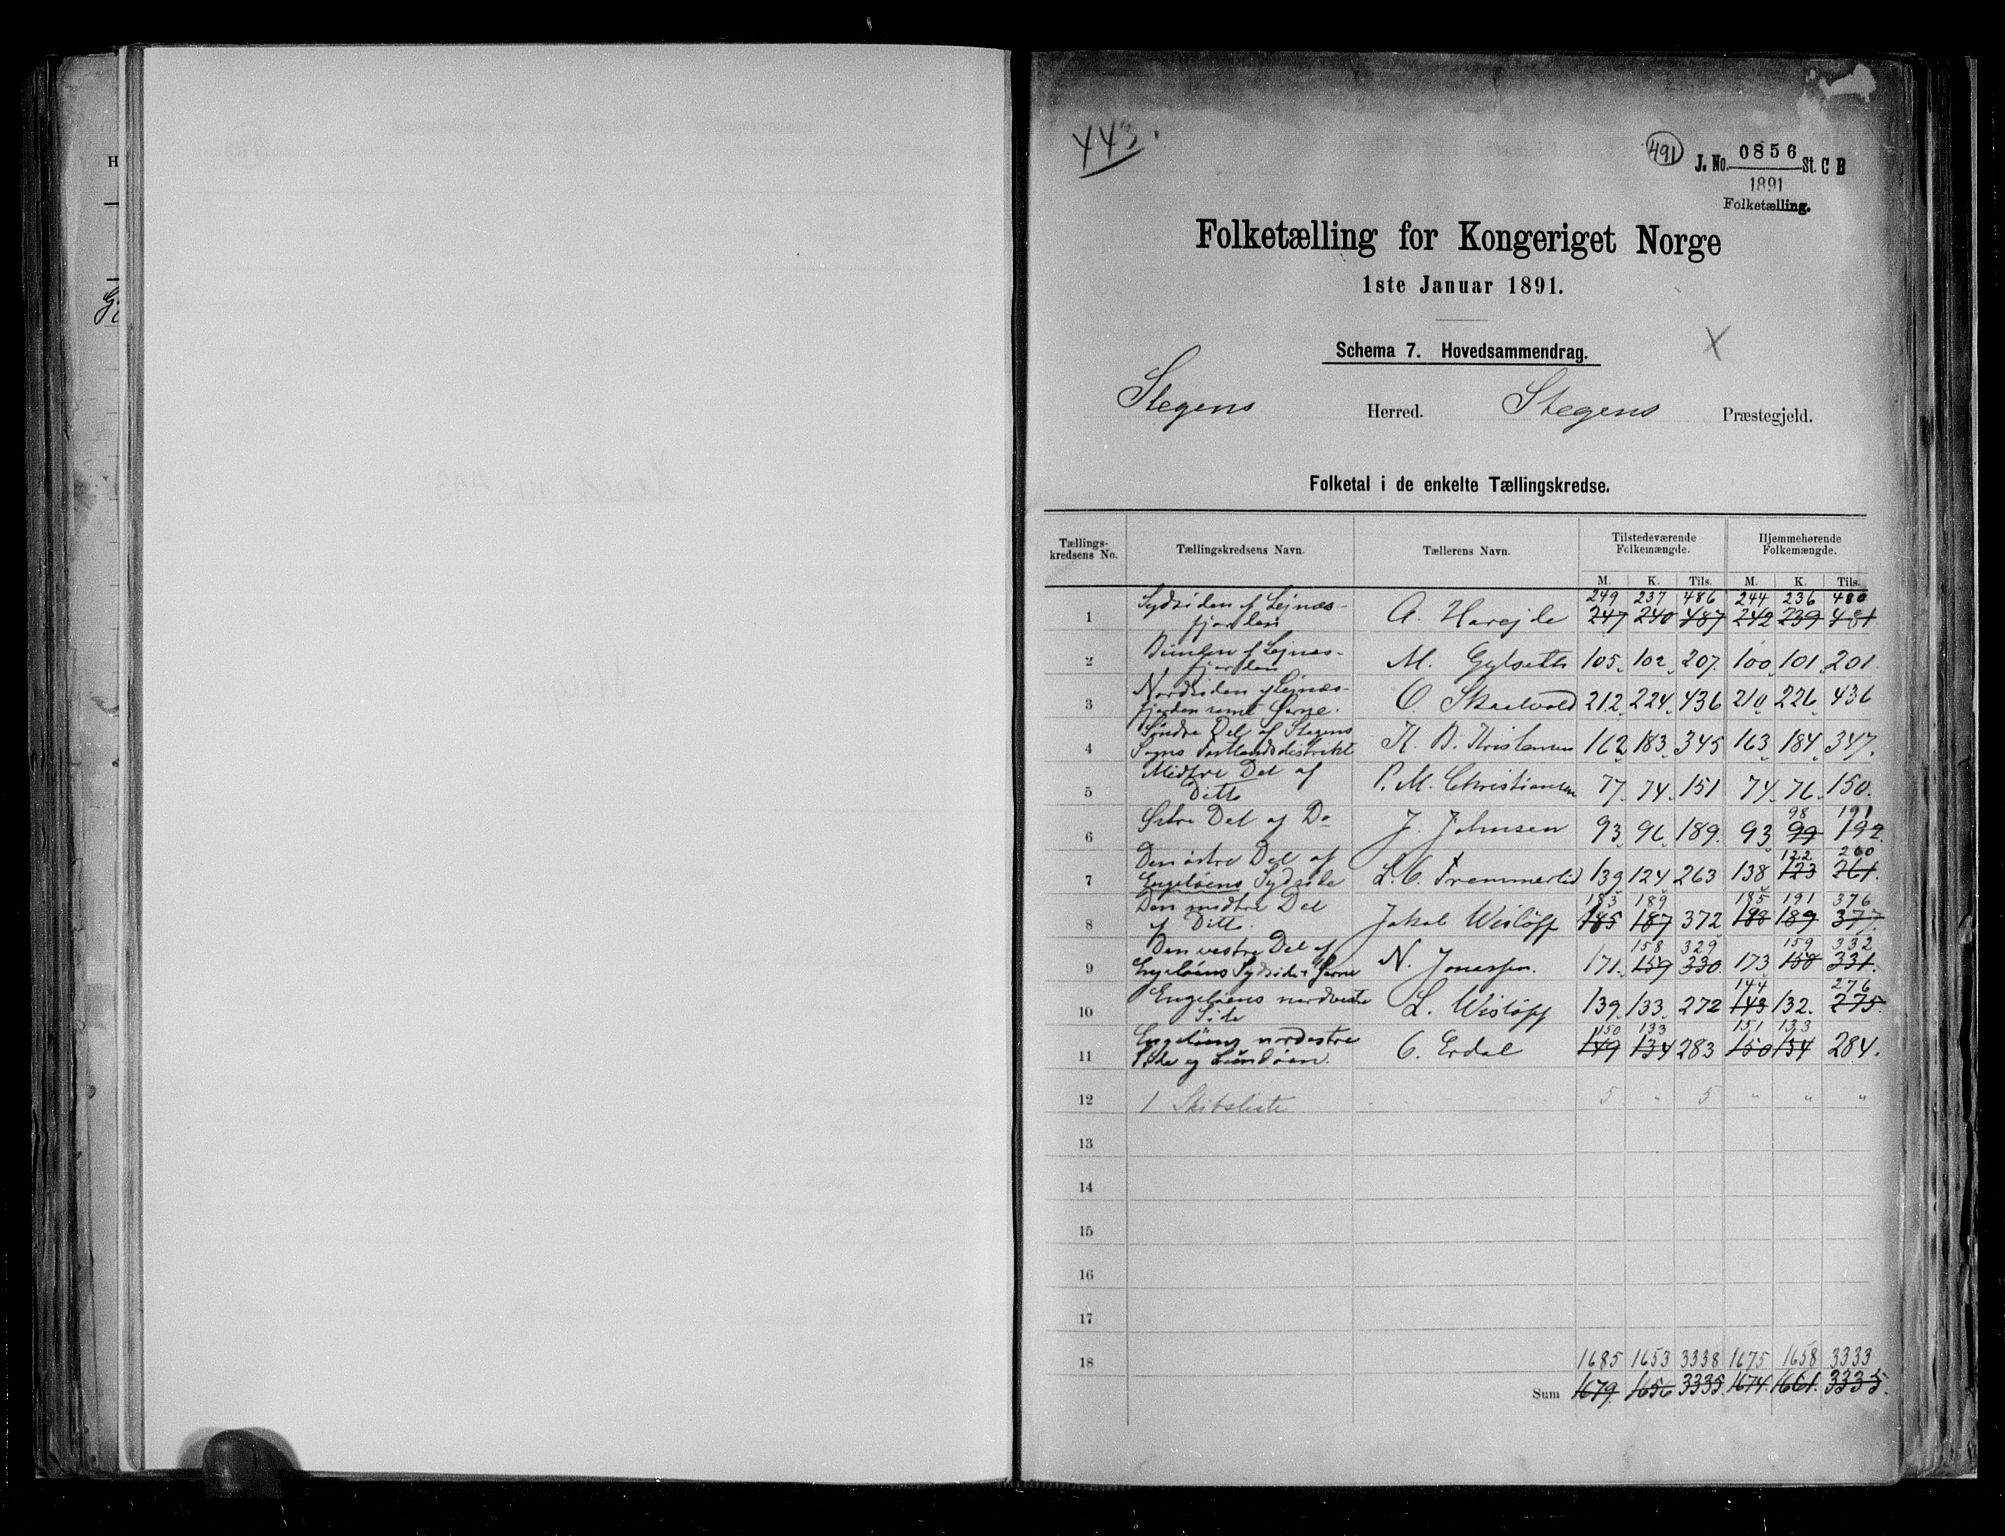 H
443.
491
J. No. 0856 St. C B
1891
Folketælling.
Folketælling for Kongeriget Norge
1ste Januar 1891.
Schema 7. Hovedsammendrag.
X
Stegens Herred. Stegens Præstegjeld.
Folketal i de enkelte Tællingskredse.
Tællings-kredsens No. Tællingskredsens Navn. Tællerens Navn. Tilstedeværende Folkemængde. Hjemmehørende Folkemængde.
M. K. Tils. M. K. Tils.
249 237 486 244 236 480
1 Sydsiden af Lejnæs-fjorden A. Harejde 247 240 487 242 239 481
2 Bunden af Lejnæs-fjorden M. Gylseth 105 102 207 100 101 201
3 Nordsiden af Lejnæs-fjorden samt Øerne. O Skaalvold 212 224 436 210 226 436
4 Søndre Del af Stegens Sogns Fastlandsdistrikt K. B. Kristensen 162 183 345 163 184 347.
5 Midtre Del af Ditto P. M. Christiansen 77 74 151 74 76 150.
98 191
6 Østre Del af Do J. Johnsen 93 96 189. 93 99 192.
122 260
7 Den østre Del af Engeløens Sydside L. C. 139 124 263 138 123 261.
183 189 185 191 376
8 Den midtre Del af Ditto. Jakob Wisløff 185 187 372 188 189 377.
158 329 159 332
9 Den vestre Del af Engeløens Sydside + Øerne N. Jonassen. 171 159 330. 173 158 331.
144 276
10 Engeløens nordvestre Side L. Wisløff 139 133 272 143 132. 275.
150 133 151 133
11 Engeløens nordøstre Side og Lundøen. C. Erdal 149 134 283 150 134 284.
12 1 Skibsliste 5 " 5 " " "
13
14
15
16
17
18 1685 1653 3338 1675 1658 3333
Sum 1679. 1656 3335. 1674. 1661. 3335.